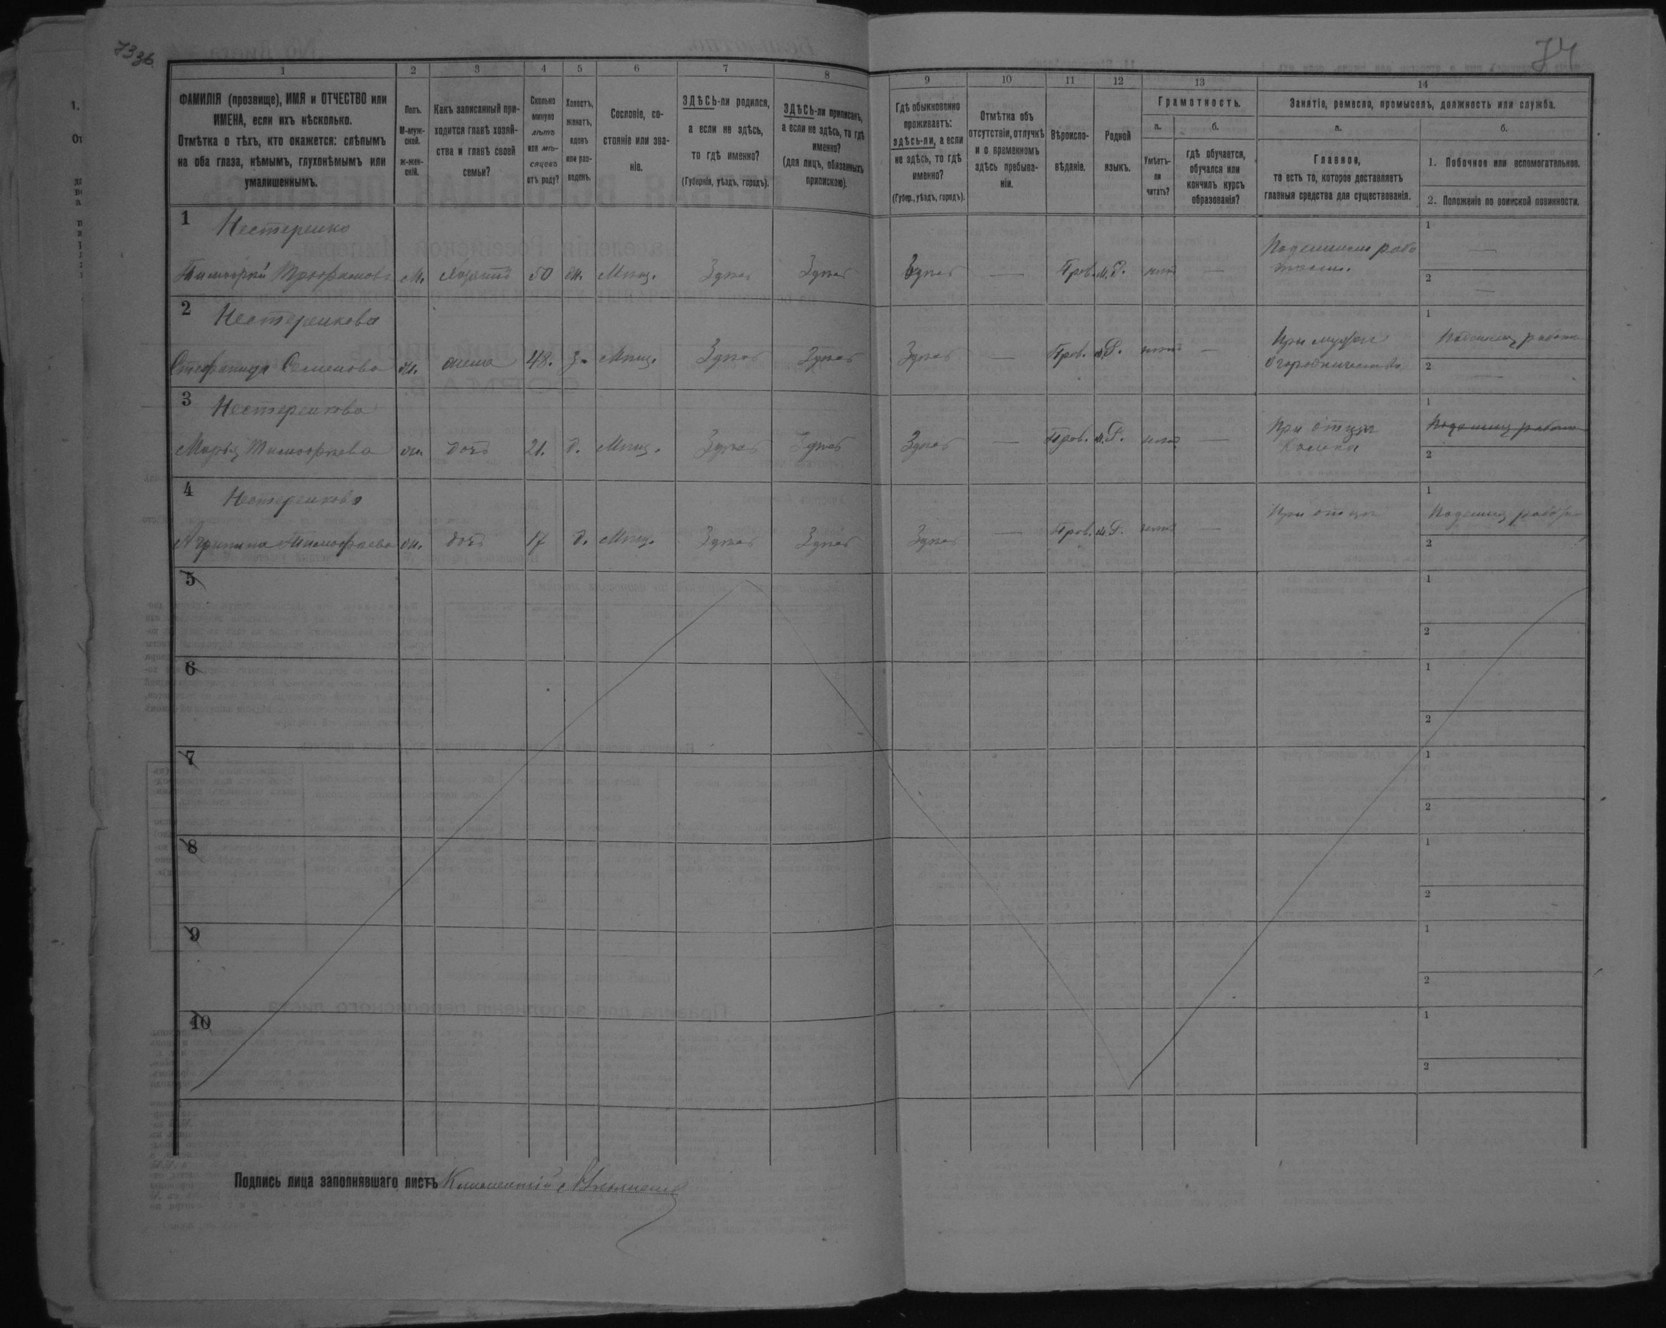 7336
74
1 2 3 4 5 6 7 8 9 10 11 12 13 14
ФАМИЛІЯ (прозвище), ИМЯ и ОТЧЕСТВО или
ИМЕНА, если ихъ нѣсколько.
Отмѣтка о тѣхъ, кто окажется: слѣпымъ
на оба глаза, нѣмымъ, глухонѣмымъ или
умалишеннымъ.
Полъ.
М-муж-
ской.
Ж-жен-
скій.
Какъ записанный при-
ходится главѣ хозяй-
ства и главѣ своей
семьи?
Сколько
минуло
лѣтъ
или мѣ-
сяцевъ
отъ роду?
Холостъ,
женатъ,
вдовъ
или раз-
веденъ.
Сословіе, со-
стояніе или зва-
ніе.
ЗДѢСЬ-ли родился,
а если не здѣсь,
то гдѣ именно?
(Губернія, уѣздъ, городъ).
ЗДѢСЬ-ли приписанъ,
а если не здѣсь, то гдѣ
именно?
(для лицъ, обязанныхъ
припискою).
Гдѣ обыкновенно
проживаетъ:
здѣсь-ли, а если
не здѣсь, то гдѣ
именно?
(Губер., уѣздъ, городъ).
Отмѣтка объ
отсутствіи, отлучкѣ
и о временномъ
здѣсь пребыва-
ніи.
Вѣроиспо-
вѣданіе.
Родной
языкъ.
Грамотность.
а.
Умѣетъ-
ли
читать?
б.
гдѣ обучается,
обучался или
кончилъ курсъ
образованія?
Занятіе, ремесло, промыселъ, должность или служба.
а.
Главное,
то есть то, которое доставляетъ
главныя средства для существованія.
б.
1. Побочное или вспомогательное.
2. Положеніе по воинской повинности.
1 Нестеренко
Тимофей Трофимовъ м. хозяинъ 50 ж. Мѣщ. Здѣсь Здѣсь Здѣсь — Прав. м.Р. нѣтъ —
1 —
2 —
2 Нестеренкова
Семенова ж. жена 48. з. Мѣщ. Здѣсь Здѣсь Здѣсь — Прав. м.Р. нѣтъ — При мужѣ
огородничество
1
2 —
3 Нестеренкова
Марья Тимофеева ж. дочь 21. д. Мѣщ. Здѣсь Здѣсь Здѣсь — Прав. м.Р. нѣтъ — При отцѣ
1
2
4 Нестеренкова
Агрипина Тимофеева ж. дочь 17 д. Мѣщ. Здѣсь Здѣсь Здѣсь — Прав. м.Р. нѣтъ — При отцѣ
1
2
5 1
2
6 1
2
7 1
2
8 1
2
9 1
2
10 1
2
Подпись лица заполнявшаго листъ